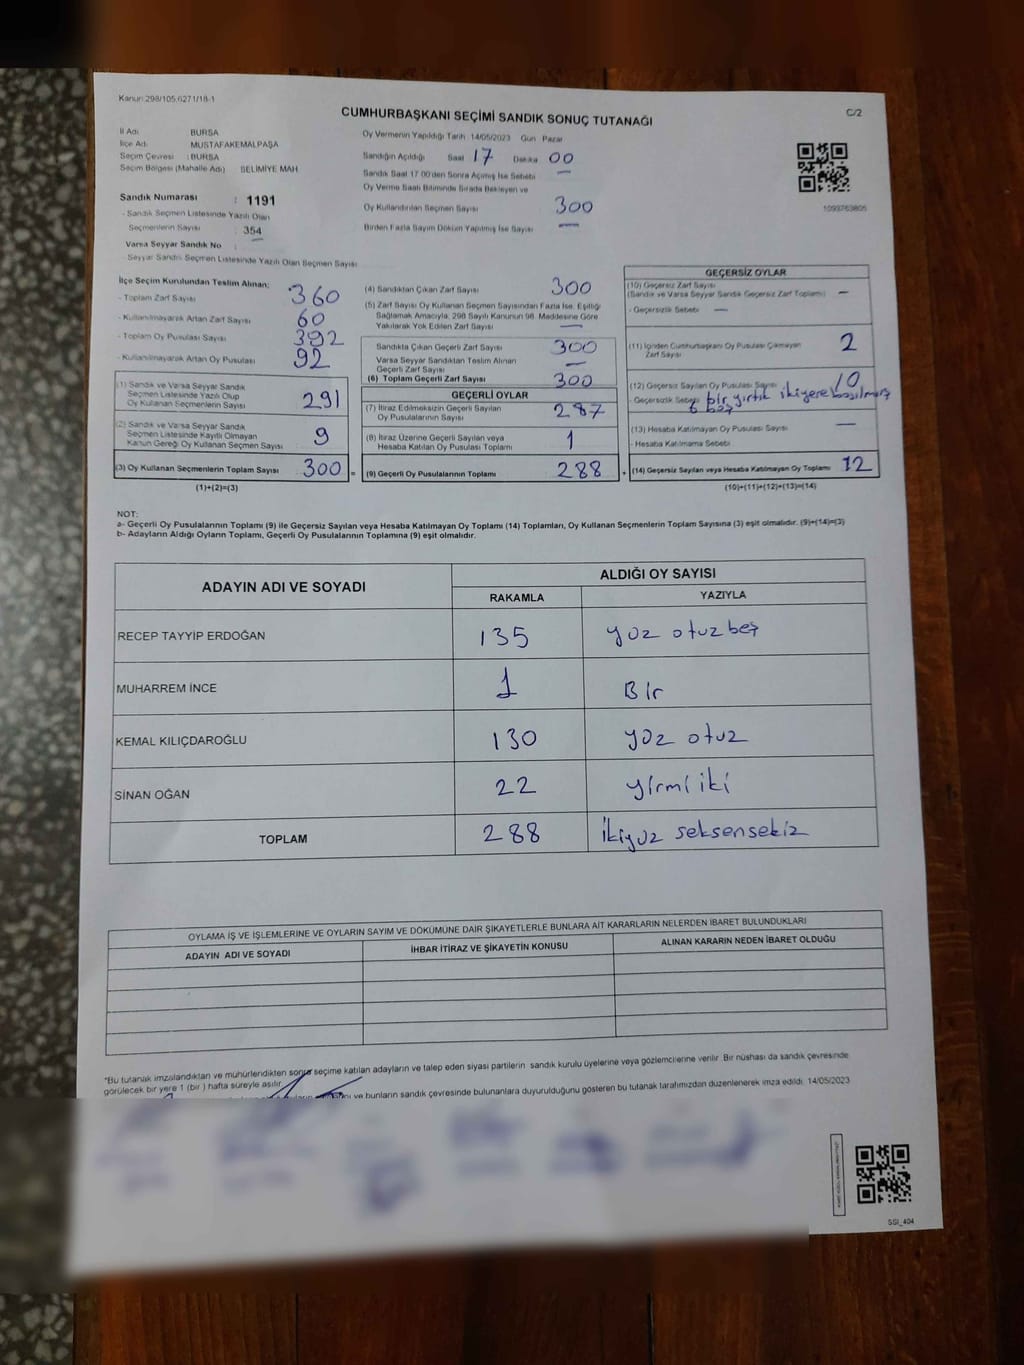 Kanun:298/105,6271/18-1
C/2
CUMHURBAŞKANI SEÇİMİ SANDIK SONUÇ TUTANAĞI
İl Adı BURSA
İlçe Adı MUSTAFAKEMALPAŞA
Seçim Çevresi : BURSA
Seçim Bölgesi (Mahalle Adı) SELİMİYE MAH
Sandık Numarası : 1191
- Sandık Seçmen Listesinde Yazılı Olan
Seçmenlerin Sayısı : 354
Varsa Seyyar Sandık No :
- Seyyar Sandık Seçmen Listesinde Yazılı Olan Seçmen Sayısı
Oy Vermenin Yapıldığı Tarih :14/05/2023 Gün Pazar
Sandığın Açıldığı Saat 17 Dakika 00
Sandık Saat 17.00'den Sonra Açılmış İse Sebebi —
Oy Verme Saati Bitiminde Sırada Bekleyen ve
Oy Kullandırılan Seçmen Sayısı 300
Birden Fazla Sayım Döküm Yapılmış İse Sayısı —
1093763805
İlçe Seçim Kurulundan Teslim Alınan;
- Toplam Zarf Sayısı 360
- Kullanılmayarak Artan Zarf Sayısı 60
- Toplam Oy Pusulası Sayısı 392
- Kullanılmayarak Artan Oy Pusulası 92
(1) Sandık ve Varsa Seyyar Sandık
Seçmen Listesinde Yazılı Olup
Oy Kullanan Seçmenlerin Sayısı 291
(2) Sandık ve Varsa Seyyar Sandık
Seçmen Listesinde Kayıtlı Olmayan
Kanun Gereği Oy Kullanan Seçmen Sayısı 9
(3) Oy Kullanan Seçmenlerin Toplam Sayısı 300 =
(1)+(2)=(3)
(4) Sandıktan Çıkan Zarf Sayısı 300
(5) Zarf Sayısı Oy Kullanan Seçmen Sayısından Fazla İse, Eşitliği
Sağlamak Amacıyla, 298 Sayılı Kanunun 98. Maddesine Göre
Yakılarak Yok Edilen Zarf Sayısı —
Sandıkta Çıkan Geçerli Zarf Sayısı 300
Varsa Seyyar Sandıktan Teslim Alınan
Geçerli Zarf Sayısı —
(6) Toplam Geçerli Zarf Sayısı 300
GEÇERLİ OYLAR
(7) İtiraz Edilmeksizin Geçerli Sayılan
Oy Pusulalarının Sayısı 287
(8) İtiraz Üzerine Geçerli Sayılan veya
Hesaba Katılan Oy Pusulası Toplamı 1
(9) Geçerli Oy Pusulalarının Toplamı 288 +
GEÇERSİZ OYLAR
(10) Geçersiz Zarf Sayısı
(Sandık ve Varsa Seyyar Sandık Geçersiz Zarf Toplamı) —
- Geçersizlik Sebebi —
(11) İçinden Cumhurbaşkanı Oy Pusulası Çıkmayan
Zarf Sayısı 2
(12) Geçersiz Sayılan Oy Pusulası Sayısı 10
- Geçersizlik Sebebi bir yırtık ikiyere basılmış
6 boş
(13) Hesaba Katılmayan Oy Pusulası Sayısı —
- Hesaba Katılmama Sebebi
(14) Geçersiz Sayılan veya Hesaba Katılmayan Oy Toplamı 12
(10)+(11)+(12)+(13)=(14)
NOT:
a- Geçerli Oy Pusulalarının Toplamı (9) ile Geçersiz Sayılan veya Hesaba Katılmayan Oy Toplamı (14) Toplamları, Oy Kullanan Seçmenlerin Toplam Sayısına (3) eşit olmalıdır. (9)+(14)=(3)
b- Adayların Aldığı Oyların Toplamı, Geçerli Oy Pusulalarının Toplamına (9) eşit olmalıdır.
ADAYIN ADI VE SOYADI
ALDIĞI OY SAYISI
RAKAMLA YAZIYLA
RECEP TAYYİP ERDOĞAN 135 yüz otuz beş
MUHARREM İNCE 1 Bir
KEMAL KILIÇDAROĞLU 130 yüz otuz
SİNAN OĞAN 22 yirmi iki
TOPLAM 288 ikiyüz seksensekiz
OYLAMA İŞ VE İŞLEMLERİNE VE OYLARIN SAYIM VE DÖKÜMÜNE DAİR ŞİKAYETLERLE BUNLARA AİT KARARLARIN NELERDEN İBARET BULUNDUKLARI
ADAYIN ADI VE SOYADI İHBAR İTİRAZ VE ŞİKAYETİN KONUSU ALINAN KARARIN NEDEN İBARET OLDUĞU
*Bu tutanak imzalandıktan ve mühürlendikten sonra seçime katılan adayların ve talep eden siyasi partilerin sandık kurulu üyelerine veya gözlemcilerine verilir. Bir nüshası da sandık çevresinde
görülecek bir yere 1 (bir) hafta süreyle asılır.
ve bunların sandık çevresinde bulunanlara duyurulduğunu gösteren bu tutanak tarafımızdan düzenlenerek imza edildi. 14/05/2023
SSI_404